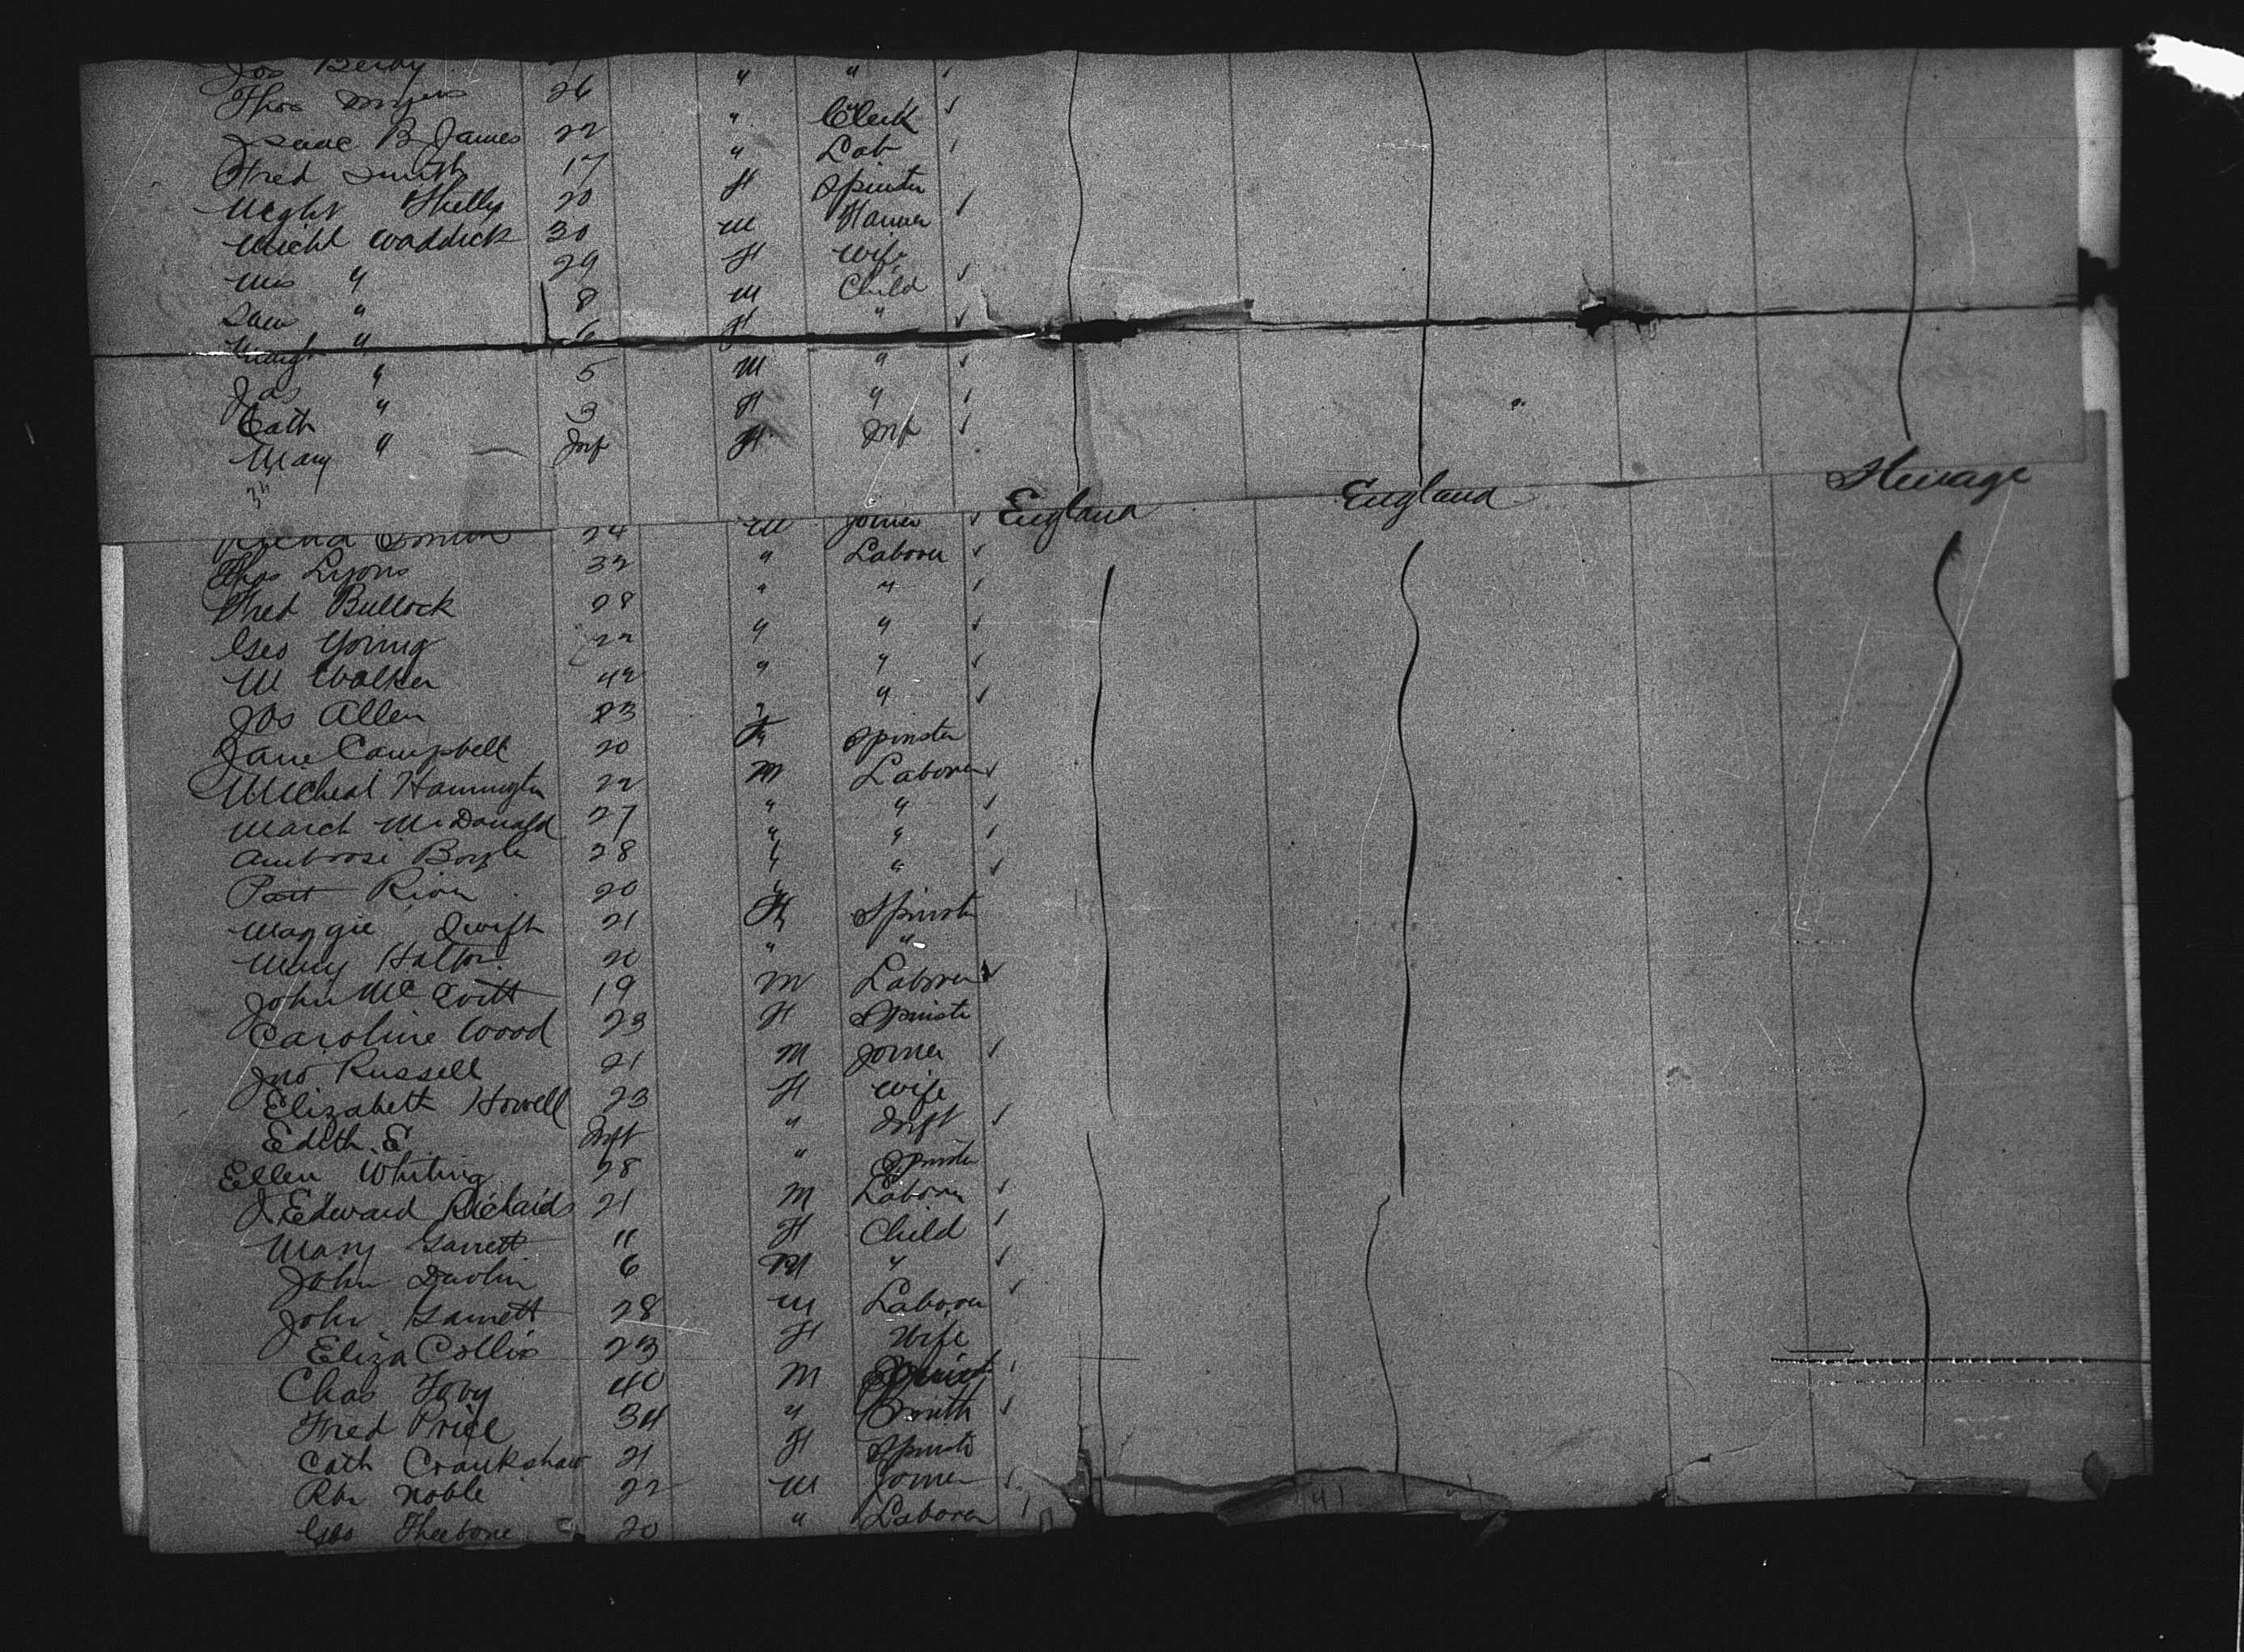 Jos Berby " " ✓
Thos Myers 26 " Clerk ✓
Isaac B James 22 " Lab ✓
Fred Smith 17 F Spinster
Maght Shelly 20 M Farmer ✓
Michl Waddick 30 F Wife
Mrs " 29 M Child ✓
Sam " 8 F " ✓
Margt " 6 M " ✓
Jas " 5 F " ✓
Cath " 3 F Inf ✓
Mary " Inf
England England Steerage
Smith 24 M Joiner ✓
Thos Lyons 32 " Laborer ✓
Fred Bullock 28 " " ✓
Geo Young 22 " " ✓
W Walker 42 " " ✓
Jos Allen 23 " " ✓
Jane Campbell 20 F Spinster
Micheal Hannington 22 M Laborer ✓
March McDonald 27 " " ✓
Ambrose Boyle 28 " " ✓
Patt 20 " " ✓
Maggie Swift 21 F Spinster
Mary Halton 20 " "
John McEvitt 19 M Laborer ✓
Caroline Wood 23 F Spinster
Jno Russell 21 M Joiner ✓
Elizabeth Howell 23 F Wife
Edith E Inft " Inft ✓
Ellen Whiting 28 " Spinster
J Edward Richards 21 M Laborer ✓
Mary Garrett 11 F Child ✓
John Davlin 6 M " ✓
John Garrett 28 M Laborer ✓
Eliza Collis 23 F Wife
Chas Toby 40 M ✓
Fred Price 34 " Smith ✓
Cath Crankshaw 21 F Spinster
Rbr Noble 22 M Joiner ✓
Geo Theebone 20 " Laborer ✓